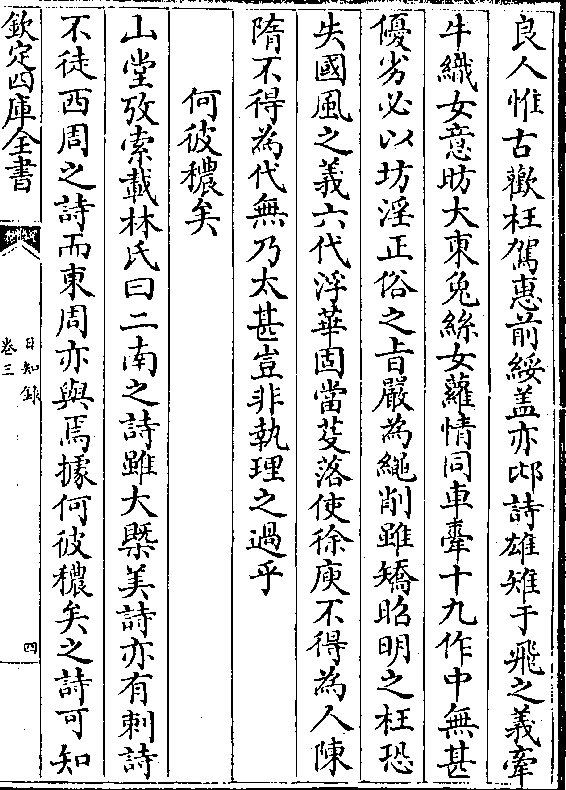 良人惟古歡枉駕惠前綏盖亦邶詩雄雉于飛之義牽
牛織女意昉大東兔絲女蘿情同車舝十九作中無甚
優劣必以坊淫正俗之旨嚴為繩削雖矯昭明之枉恐
失國風之義六代浮華固當芟落使徐庾不得為人陳
隋不得為代無乃太甚豈非執理之過乎
何彼穠矣
山堂攷索載林氏曰二南之詩雖大槩美詩亦有刺詩
不徒西周之詩而東周亦與焉據何彼穠矣之詩可知
欽定四庫全書
日知錄
卷三
四